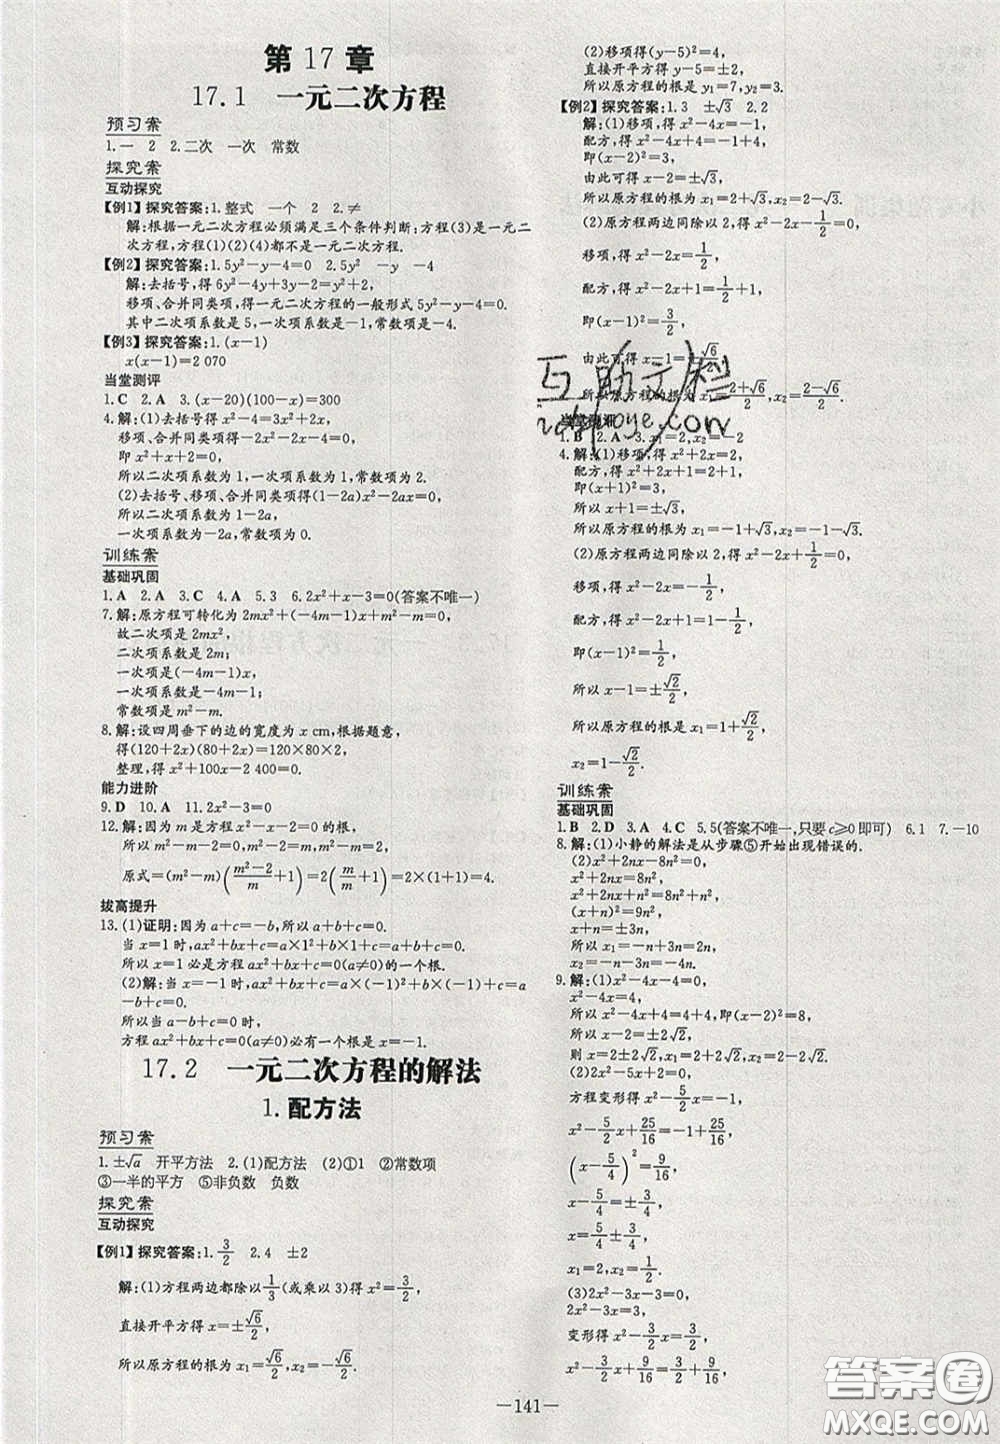 第17章
17.1 一元二次方程
预习案
1.一 2 2.二次 一次 常数
探究案
互动探究
【例1】探究答案:1.整式 一个 2 2.≠
解:根据一元二次方程必须满足三个条件判断:方程(3)是一元二
次方程,方程(1)(2)(4)都不是一元二次方程.
【例2】探究答案:1.5y²-y-4=0 2.5y² -y -4
解:去括号,得6y²-4y+3y-2=y²+2,
移项、合并同类项,得一元二次方程的一般形式5y²-y-4=0.
其中二次项系数是5,一次项系数是-1,常数项是-4.
【例3】探究答案:1.(x-1)
x(x-1)=2 070
当堂测评
1.C 2.A 3.(x-20)(100-x)=300
4.解:(1)去括号得-2x²+3x²=3x²+2x,
移项、合并同类项得-2x²-2x-2=0,
即x²+x+2=0,
所以二次项系数为1,一次项系数为1,常数项为2.
(2)去括号、移项、合并同类项得(1-2a)x²-2ax=0,
所以二次项系数为1-2a,
一次项系数为-2a,常数项为0.
训练案
基础巩固
1.A 2.A 3.C 4.A 5.3 6.2x²+x-3=0(答案不唯一)
7.解:原方程可转化为2mx²+(-4m-1)x+m²-m=0,
故二次项是2mx²,
二次项系数是2m;
一次项是(-4m-1)x,
一次项系数是-4m-1;
常数项是m²-m.
8.解:设四周垂下的边的宽度为x cm,根据题意,
得(120+2x)(80+2x)=120×80×2,
整理,得x²+100x-2 400=0.
能力进阶
9.D 10.A 11.2x²-3=0
12.解:因为m是方程x²-x-2=0的根,
所以m²-m-2=0,m²-2=m,
原式=(m²-m)((m²-2)/m+1)=2(m/m+1)=2×(1+1)=4.
拔高提升
13.(1)证明:因为a+c=-b,所以a+b+c=0.
当x=1时,ax²+bx+c=a×1²+b×1+c=a+b+c=0,
所以x=1必是方程ax²+bx+c=0(a≠0)的一个根.
(2)解:当x=-1时,ax²+bx+c=a×(-1)²+b×(-1)+c=a
-b+c=0.
所以当a-b+c=0时,
方程ax²+bx+c=0(a≠0)必有一个根是x=-1.
17.2 一元二次方程的解法
1.配方法
预习案
1.±√a 开平方法 2.(1)配方法 (2)①1 ②常数项
③一半的平方 ⑤非负数 负数
探究案
互动探究
【例1】探究答案:1.3/2 2.4 ±2
解:(1)方程两边都除以1/3(或乘以3)得x²=3/2,
直接开平方得x=±√6/2,
所以原方程的根是x₁=√6/2,x₂=-√6/2.
(2)移项得(y-5)²=4,
直接开平方得y-5=±2,
所以原方程的根是y₁=7,y₂=3.
【例2】探究答案:1.3 ±√3 2.2
解:(1)移项,得x²-4x=-1,
配方,得x²-4x+4=-1+4,
即(x-2)²=3,
由此可得x-2=±√3,
所以原方程的根为x₁=2+√3,x₂=2-√3.
(2)原方程两边同除以2,得x²-2x-1/2=0,
移项,得x²-2x=1/2,
配方,得x²-2x+1=1/2+1,
即(x-1)²=3/2,
由此可得x-1=±√6/2,
所以原方程的根为x₁=(2+√6)/2,x₂=(2-√6)/2.
当堂测评
1.B 2.A 3.x₁=2,x₂=-2
4.解:(1)移项,得x²+2x=2,
配方,得x²+2x+1=2+1,
即(x+1)²=3,
所以x+1=±√3,
所以原方程的根为x₁=-1+√3,x₂=-1-√3.
(2)原方程两边同除以2,得x²-2x+1/2=0,
移项,得x²-2x=-1/2,
配方,得x²-2x+1=-1/2+1,
即(x-1)²=1/2,
所以x-1=±√2/2,
所以原方程的根为x₁=1+√2/2,
x₂=1-√2/2.
训练案
基础巩固
1.B 2.D 3.A 4.C 5.5(答案不唯一,只要c≥0即可) 6.1 7.-10
8.解:(1)小静的解法是从步骤⑤开始出现错误的.
(2)x²+2nx-8n²=0,
x²+2nx=8n²,
x²+2nx+n²=8n²+n²,
(x+n)²=9n²,
x+n=±3n,
所以x₁=-n+3n=2n,
x₂=-n-3n=-4n.
9.解:(1)x²-4x-4=0,
x²-4x=4,
所以x²-4x+4=4+4,即(x-2)²=8,
所以x-2=±2√2,
则x=2±2√2.
(2)2x²-5x+2=0,
方程变形得x²-5/2x=-1,
x²-5/2x+25/16=-1+25/16,
(x-5/4)²=9/16,
x-5/4=±3/4,
x=5/4±3/4,
x₁=2,x₂=1/2.
(3)2x²-3x-3=0,
2x²-3x=3,
变形得x²-3/2x=3/2,
x²-3/2x+9/16=3/2+9/16,
-141-
互助文档
答案圈
MXQE.COM